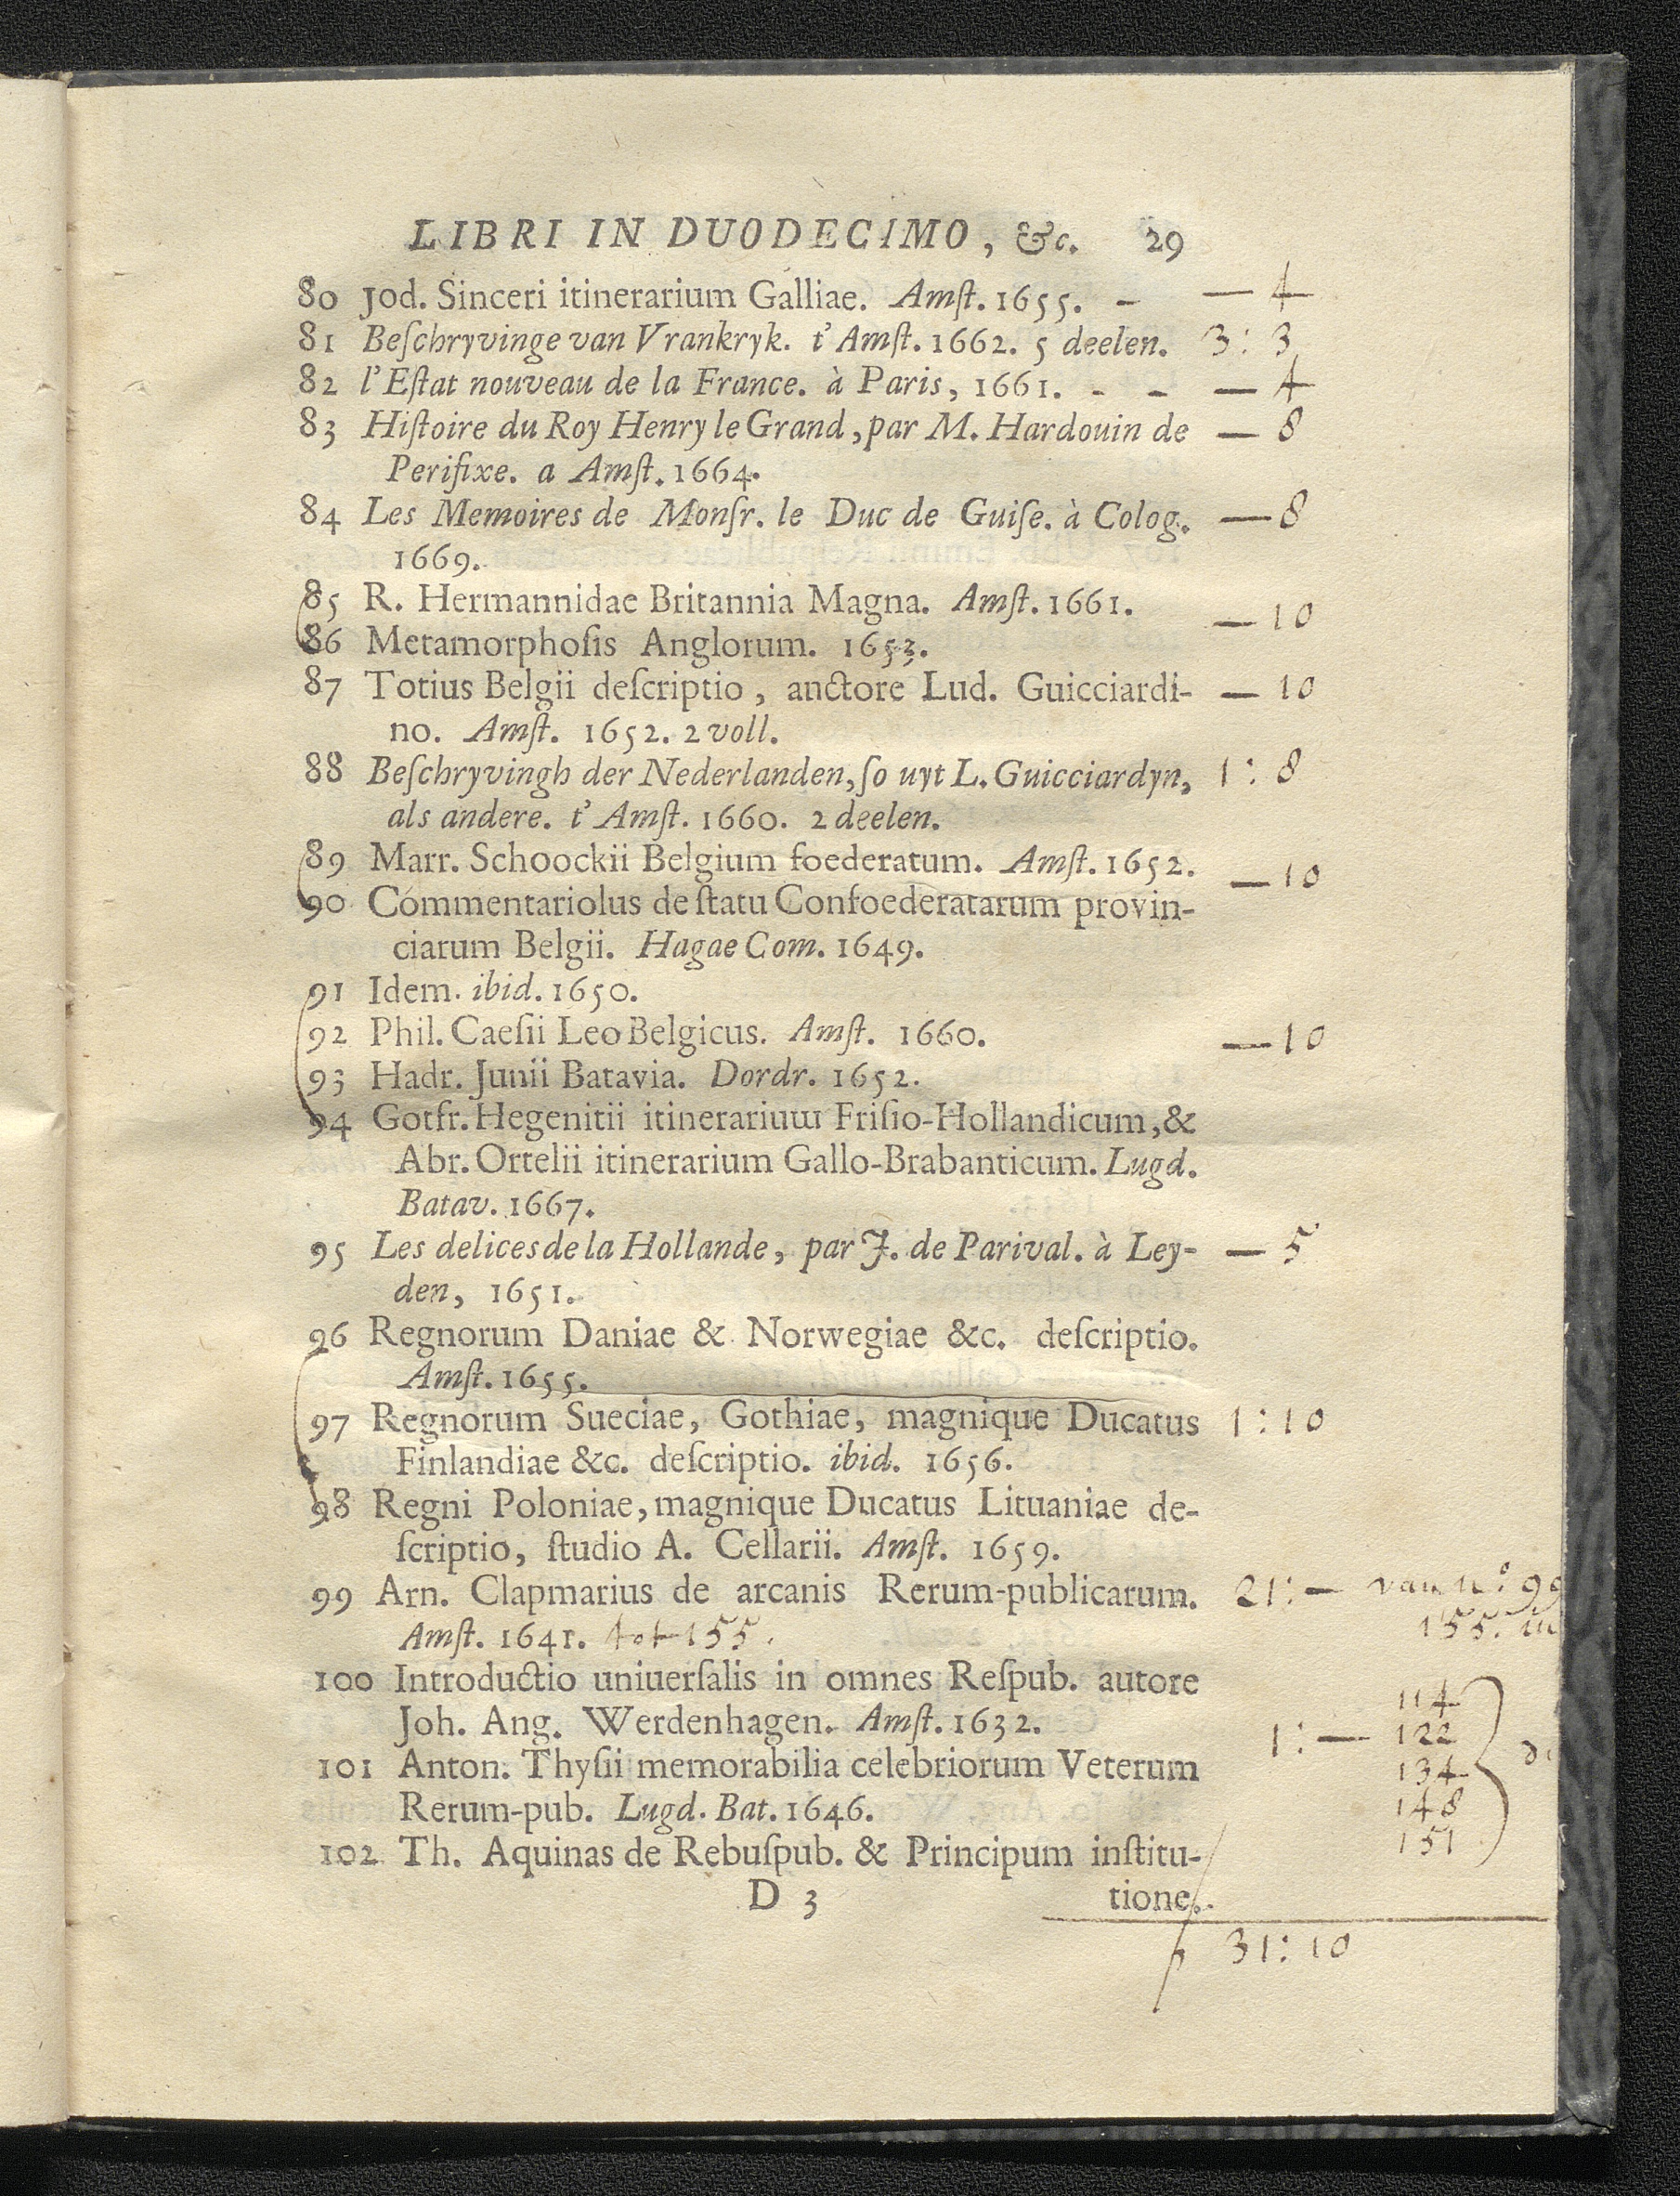 LIBRI IN DUODECIMO, &c. 29
80 Jod. Sinceri itinerarium Galliae. Amſt. 1655. - — 4
81 Beſchryvinge van Vrankryk. t' Amſt. 1662. 5 deelen. 3 : 3
82 l'Eſtat nouveau de la France. à Paris, 1661. - - — 4
83 Hiſtoire du Roy Henry le Grand, par M. Hardouin de — 8
Perifixe. a Amſt. 1664.
84 Les Memoires de Monſr. le Duc de Guiſe. à Colog. — 8
1669.
85 R. Hermannidae Britannia Magna. Amſt. 1661.
— 10
86 Metamorphoſis Anglorum. 1653.
87 Totius Belgii deſcriptio, auctore Lud. Guicciardi- — 10
no. Amſt. 1652. 2 voll.
88 Beſchryvingh der Nederlanden, ſo uyt L. Guicciardyn, 1 : 8
als andere. t' Amſt. 1660. 2 deelen.
89 Marr. Schoockii Belgium foederatum. Amſt. 1652.
— 10
90 Commentariolus de ſtatu Confoederatarum provin-
ciarum Belgii. Hagae Com. 1649.
91 Idem. ibid. 1650.
92 Phil. Caeſii Leo Belgicus. Amſt. 1660. — 10
93 Hadr. Junii Batavia. Dordr. 1652.
94 Gotfr. Hegenitii itinerarium Friſio-Hollandicum, &
Abr. Ortelii itinerarium Gallo-Brabanticum. Lugd.
Batav. 1667.
95 Les delices de la Hollande, par J. de Parival. à Ley- — 5
den, 1651.
96 Regnorum Daniae & Norwegiae &c. deſcriptio.
Amſt. 1655.
97 Regnorum Sueciae, Gothiae, magnique Ducatus 1 : 10
Finlandiae &c. deſcriptio. ibid. 1656.
98 Regni Poloniae, magnique Ducatus Lituaniae de-
ſcriptio, ſtudio A. Cellarii. Amſt. 1659.
99 Arn. Clapmarius de arcanis Rerum-publicarum. 21 : — van No. 99
Amſt. 1641. tot 155. 155.
100 Introductio uniuerſalis in omnes Reſpub. autore
114
Joh. Ang. Werdenhagen. Amſt. 1632. 1 : — 122
101 Anton. Thyſii memorabilia celebriorum Veterum 134
Rerum-pub. Lugd. Bat. 1646. 148
151
102 Th. Aquinas de Rebuſpub. & Principum inſtitu-
D 3 tione.
31 : 10